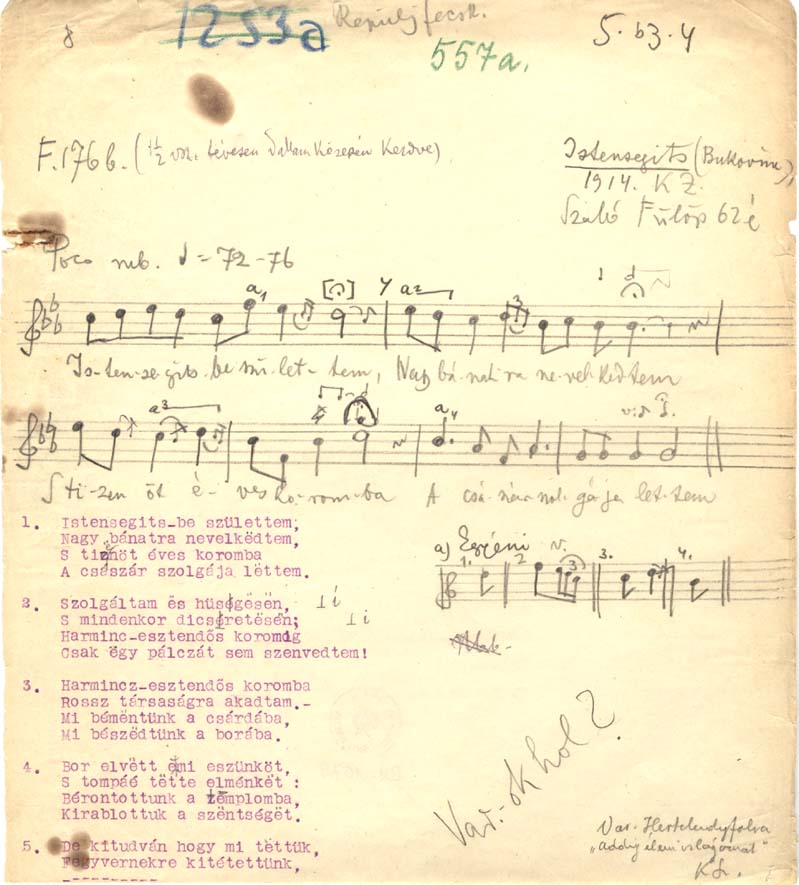 8
1253a
Repülj fecsk.
557a.
5.b3.4
F.176b. (
Istensegits (Bukovina),
1914. K Z.
Szabó Fülöp 62 é
Poco rub. ♩ = 72-76
a1
a2
3
Is-ten-se-gits-be szü-let-tem, Nagy bá-nat-ra ne-vel-kedtem
a3
a4
v:
S ti-zen öt é-ves ko-rom-ba A csá-szár szol-gája let-tem
1. Istensegits-be születtem;
Nagy bánatra nevelkëdtem,
S tiznöt éves koromba
A császár szolgája lëttem.
a) Egyéni v.
1. 2 3. 4.
3
2. Szolgáltam és hüségësën,
S mindenkor dicséretësën;
Harminc-esztendős koromig
Csak ëgy pálczát sem szenvedtem!
⊥ i
⊥ i
3. Harmincz-esztendős koromba
Rossz társaságra akadtam.-
Mi bémëntünk a csárdába,
Mi bészëdtünk a borába.
4. Bor elvëtt ëmi eszünköt,
S tompáé tëtte elménkët :
Bérontottunk a templomba,
Kirablottuk a szëntségët.
5. De kitudván hogy mi tëttük,
Fegyvernekre kitétettünk,
----------
Var.-ok hol?
Var. Hertelendyfalva
"addig élem világomat"